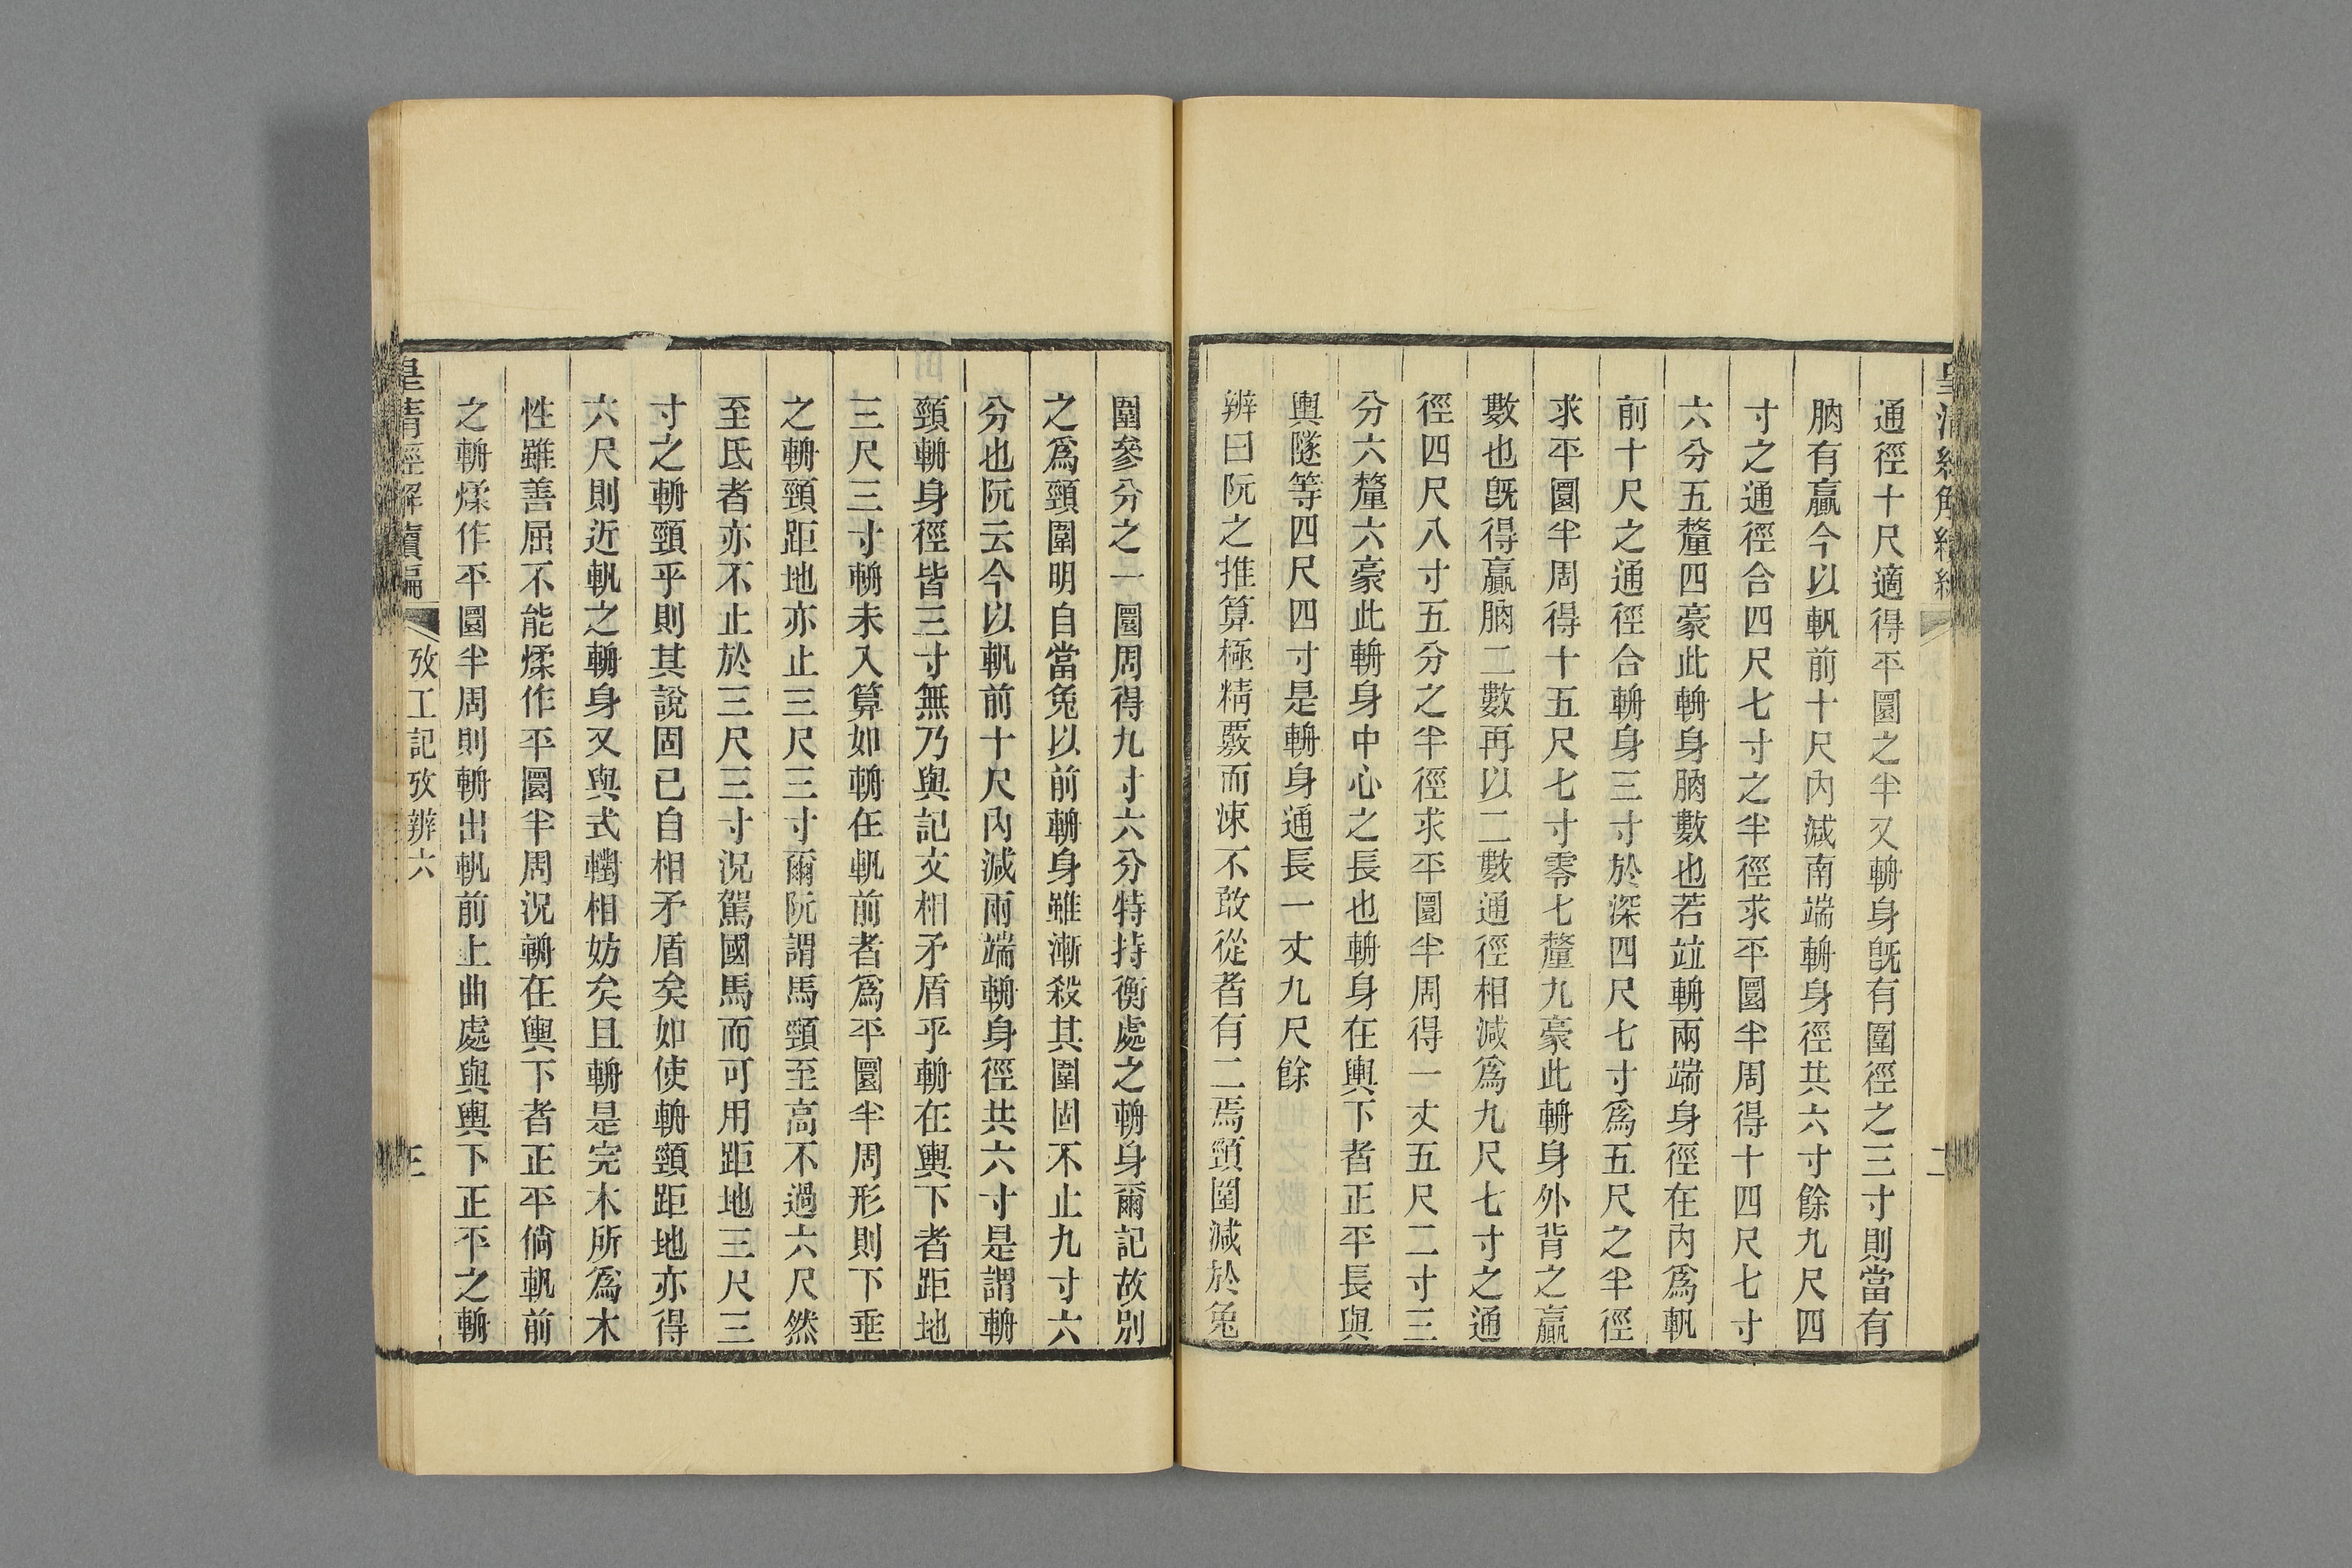 通徑十尺適得平圜之半又輈身旣有圍徑之三寸則當有
朒有贏今以軓前十尺內減南端輈身徑共六寸餘九尺四
寸之通徑合四尺七寸之半徑求平圜半周得十四尺七寸
六分五釐四豪此輈身朒數也若竝輈兩端身徑在內爲軓
前十尺之通徑合輈身三寸於深四尺七寸爲五尺之半徑
求平圜半周得十五尺七寸零七釐九豪此輈身外背之贏
數也旣得贏朒二數再以二數通徑相減爲九尺七寸之通
徑四尺八寸五分之半徑求平圜半周得一丈五尺二寸三
分六釐六豪此輈身中心之長也輈身在輿下者正平長與
輿隧等四尺四寸是輈身通長一丈九尺餘
辨曰阮之推算極精覈而涑不敢從者有二焉頸圍減於兔
圍參分之一圜周得九寸六分特持衡處之輈身爾記故別
之爲頸圍明自當兔以前輈身雖漸殺其圍固不止九寸六
分也阮云今以軓前十尺內減兩端輈身徑共六寸是謂輈
頸輈身徑皆三寸無乃與記文相矛盾乎輈在輿下者距地
三尺三寸輈未入算如輈在軓前者爲平圜半周形則下垂
之輈頸距地亦止三尺三寸爾阮謂馬頸至高不過六尺然
至氐者亦不止於三尺三寸況駕國馬而可用距地三尺三
寸之輈頸乎則其說固已自相矛盾矣如使輈頸距地亦得
六尺則近軓之輈身又與式轛相妨矣且輈是完木所爲木
性雖善屈不能煣作平圜半周況輈在輿下者正平倘軓前
之輈煣作平圜半周則輈出軓前上曲處與輿下正平之輈
皇清經解續編
攷工記攷辨六